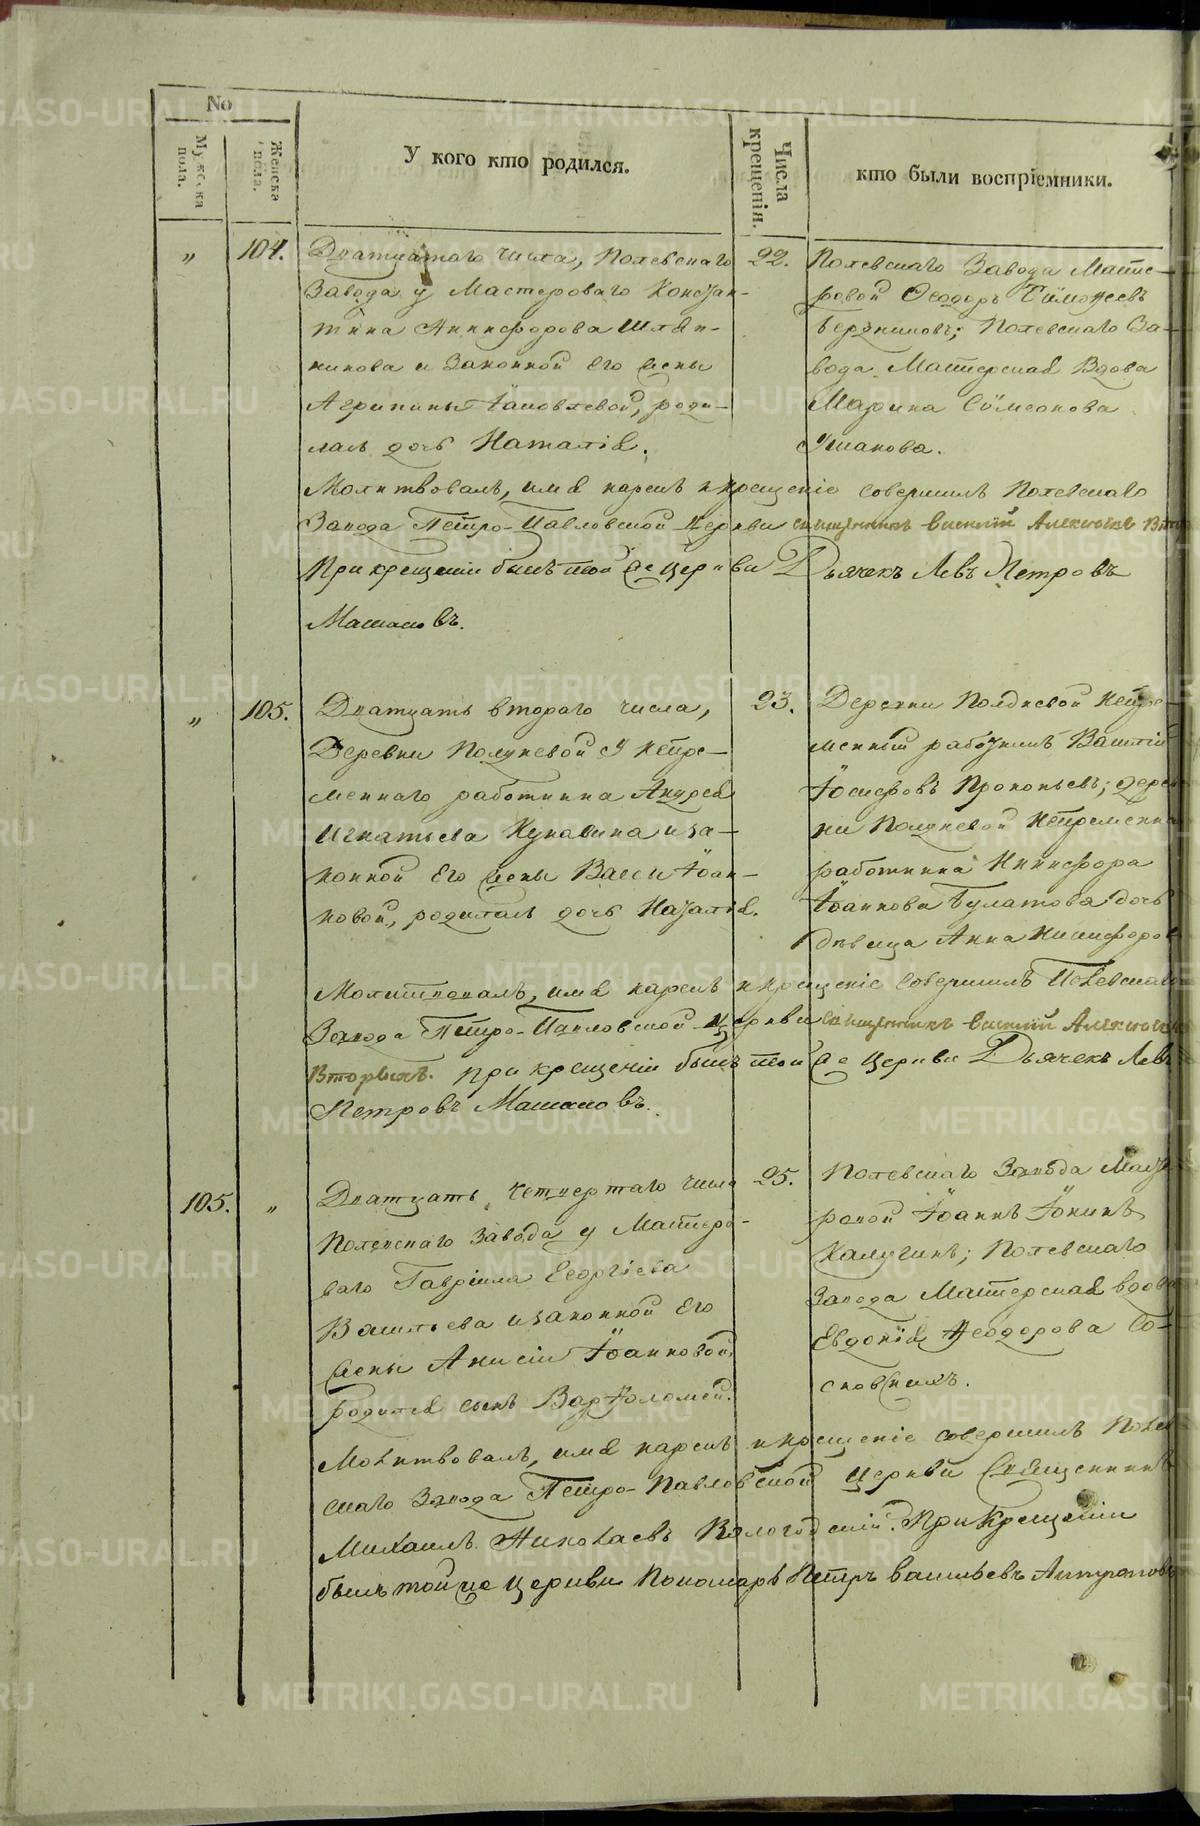 No
Мужеска пола.
Женска пола.
У кого кто родился.
Числа крещенія.
кто были воспріемники.
„
104.
Дватцатаго числа, Полевскаго
Завода у Мастероваго Констан-
тина Никифорова Шляп-
никова и Законной его жены
Агрипины Іаковлевой, роди-
лась дочь Наталія.
22.
Полевскаго Завода Масте-
ровой Ѳеодоръ Тимоѳеевъ
Полевскаго За-
вода Мастерская Вдова
Марина Сѵмеонова
Ушакова.
Молитвовалъ, имя нарекъ и крещеніе совершилъ Полевскаго
Завода Петро-Павловской Церкви священникъ Василій Алексѣевъ
При крещеніи былъ той же Церкви Дьячекъ Левъ Петровъ
„
105.
Дватцать втораго числа,
Деревни Полдневой у Непре-
меннаго работника Андрея
Игнатьева и за-
конной его жены Вассы Іоан-
новой, родилась дочь Наталія.
23.
Деревни Полдневой Непре-
менный работникъ Василій
Іосифовъ Прокопьевъ; дерев-
ни Полдневой Непременна
работника Никифора
Іоаннова Булатова дочь
дѣвица Анна Никифоров
Молитвовалъ, имя нарекъ и крещеніе совершилъ Полевскаго
Завода Петро-Павловской Церкви священникъ Василій Алексѣевъ
Вторыхъ. При крещеніи былъ той же Церкви Дьячекъ Левъ
Петровъ
105.
„
Дватцать четвертаго числа
Полевскаго Завода у Мастеро-
ваго Гавріила Георгіева
Васильева и законной его
жены Анисіи Іоанновой
родился сынъ Варѳоломей.
25.
Полевскаго Завода Масте
ровой Іоаннъ Іонинъ
Калугинъ; Полевскаго
Завода Мастерская вдова
Евдокія Ѳеодорова Со-
Молитвовалъ, имя нарекъ и крещеніе совершилъ Полев
скаго Завода Петро-Павловской Церкви Священникъ
Михаилъ Николаевъ Вологодскій. При Крещеніи
былъ той же Церкви Пономарь Петръ Васильевъ Антроповъ
METRIKI.GASO-URAL.RU